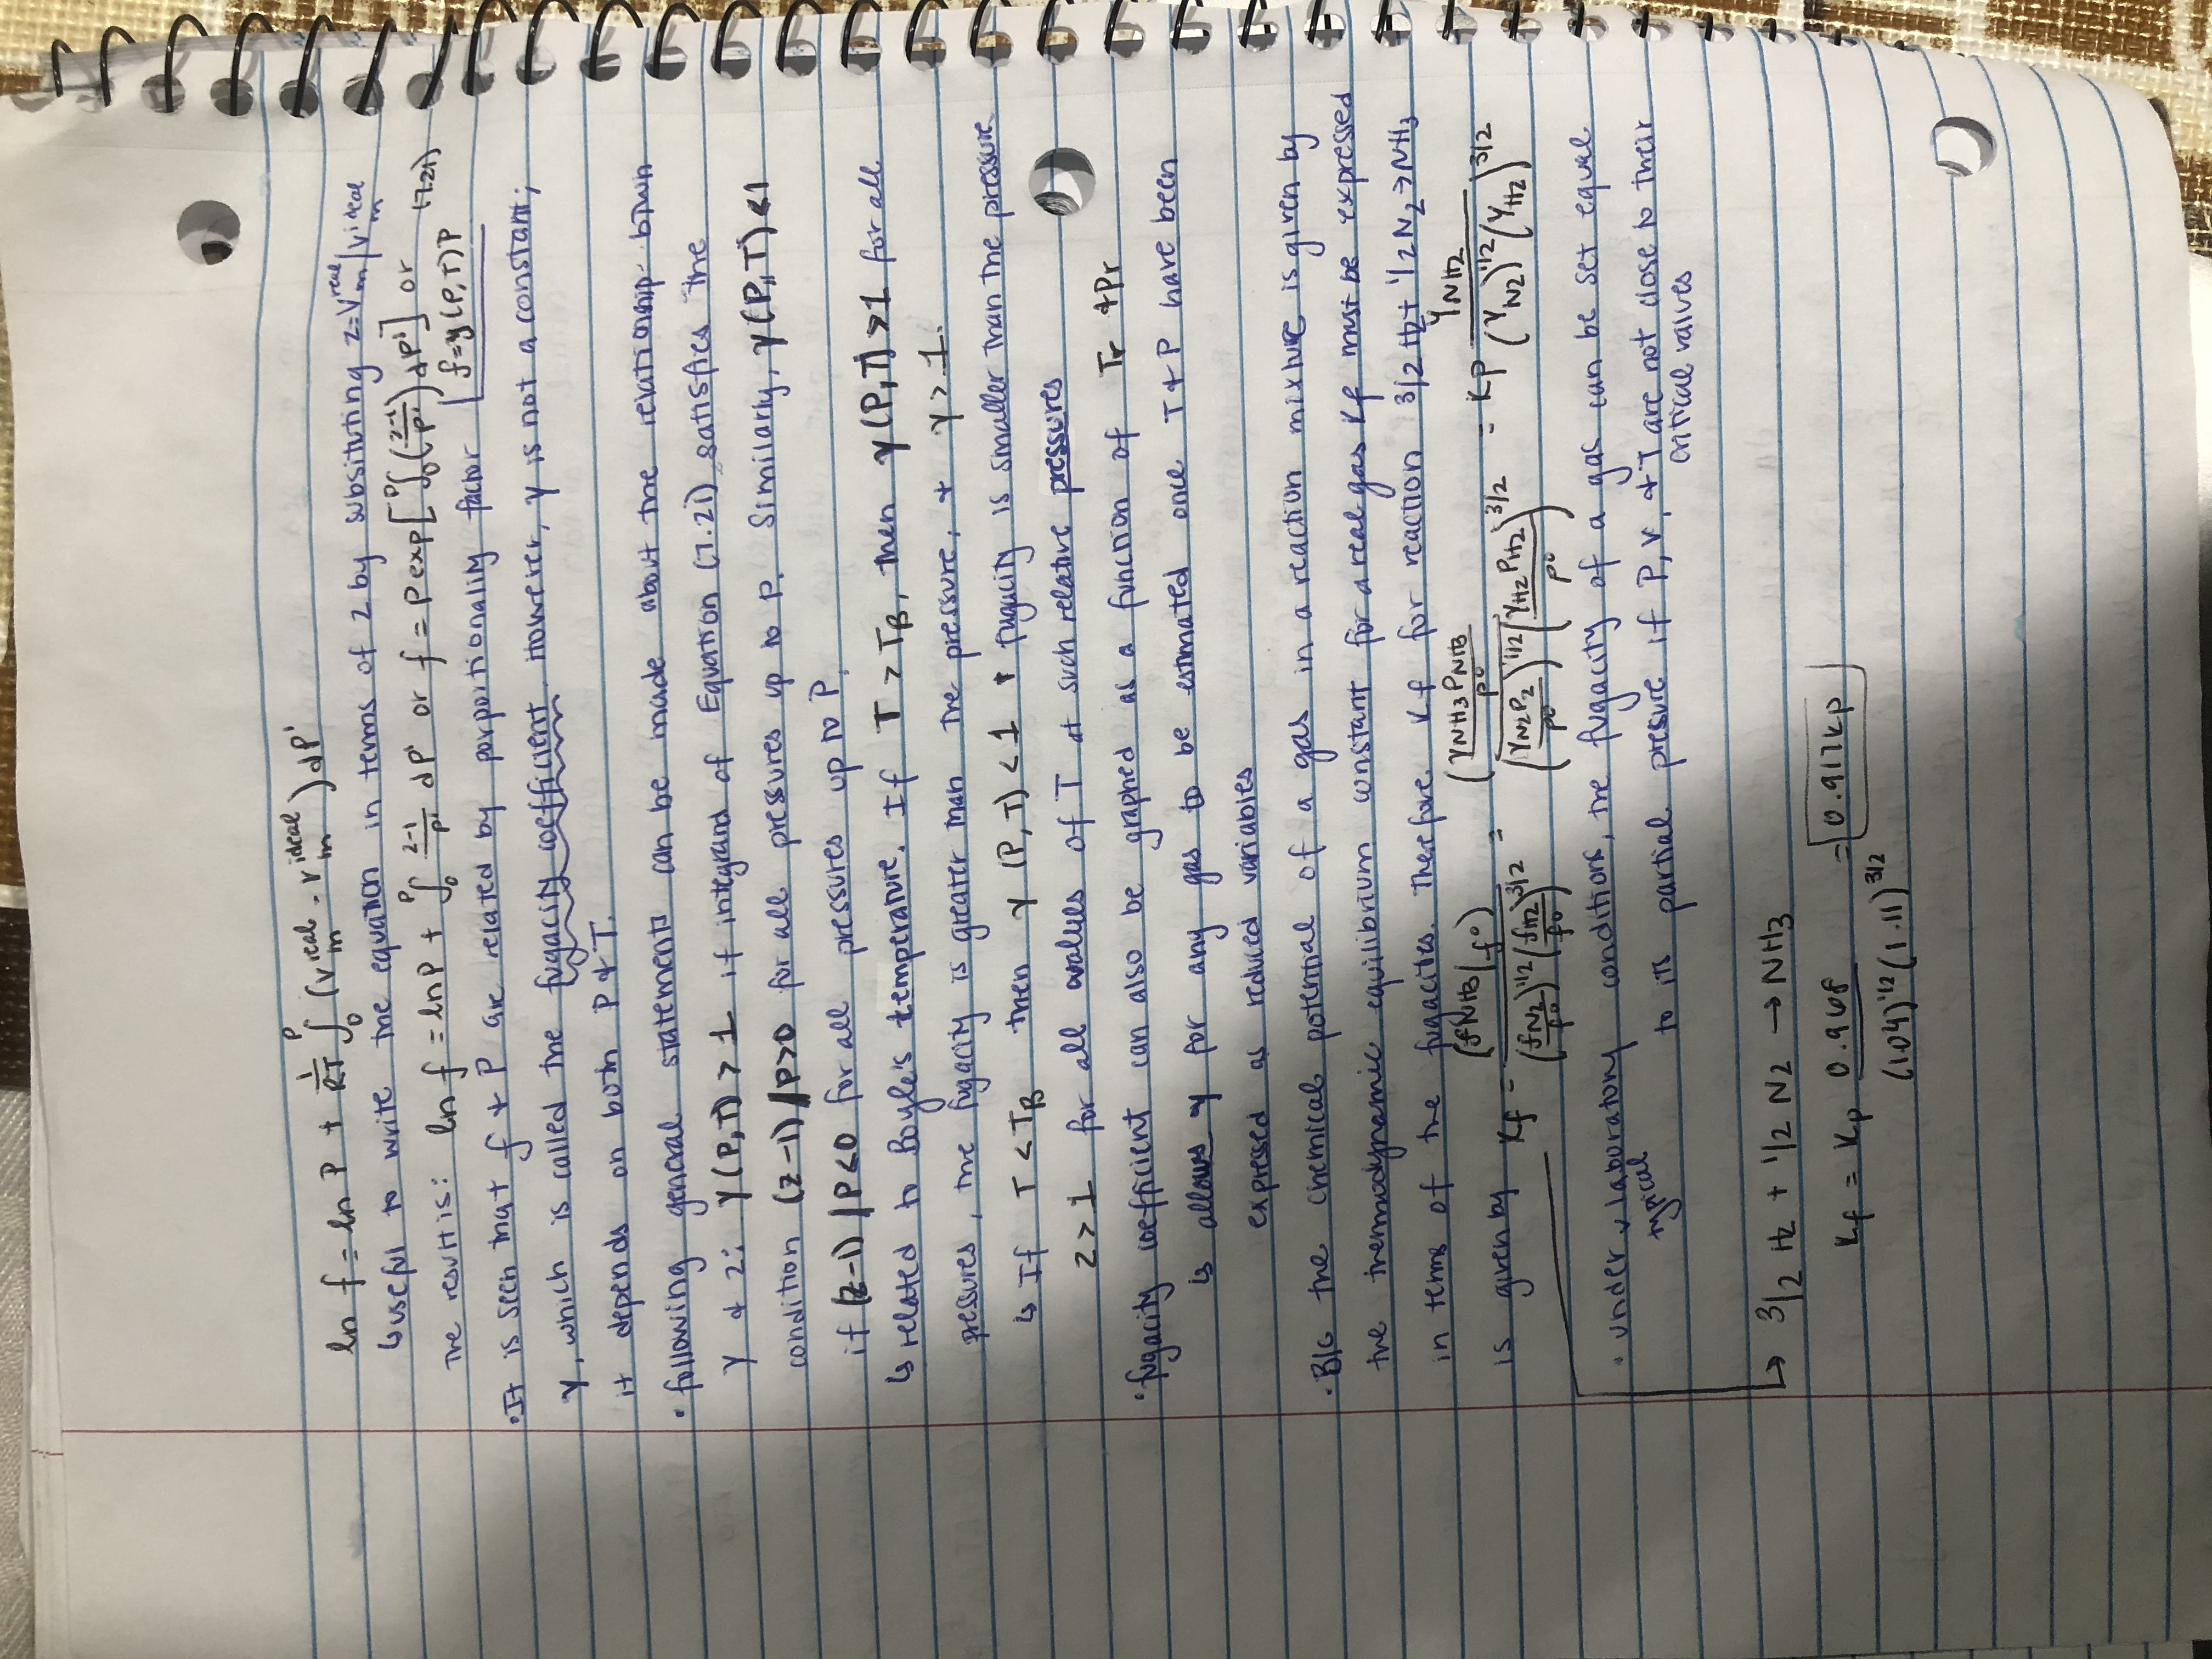 ln f = ln P + 1/RT ∫₀ᴾ (V_m^real - V_m^ideal) dP'
↳ useful to write the equation in terms of z by subsituting z=V_m^real/V_m^ideal
The result is: ln f = ln P + ∫₀ᴾ (z-1)/P' dP' or f = P exp[ᴾ∫₀((z-1)/P')dP'] or (7.21)
f=γ(P,T)P
• It is seen that f & P are related by porportionality factor
γ, which is called the fugacity coefficient. However, γ is not a constant;
it depends on both P & T.
• following general statements can be made about the relationship btwn
γ & z: γ(P,T) > 1 if integrand of Equation (7.21) satisfies the
condition (z-1)/P>0 for all pressures up to P. Similarly, γ(P,T)<1
if (z-1)/P<0 for all pressures up to P.
↳ related to Boyle's temperature. If T > T_B, then γ(P,T)>1 for all
pressures, the fugacity is greater than the pressure, & γ > 1.
↳ If T < T_B then γ (P,T) < 1 & fugacity is smaller than the pressure
z > 1 for all values of T at such relative pressures
• fugacity coefficient can also be graphed as a function of Tr & Pr
↳ allows γ for any gas to be estimated once T & P have been
expressed as reduced variables
• B/c the chemical potential of a gas in a reaction mixture is given by
the thermodynamic equilibrium constant for a real gas Kf must be expressed
in terms of the fugacites. Therefore Kf for reaction 3/2 H2 + 1/2 N2 → NH3
is given by Kf = (fNH3/f°) / ((fN2/f°)^1/2 (fH2/f°)^3/2) = (γNH3 PNH3/P°) / ((γN2P2/P°)^1/2 (γH2 PH2/P°)^3/2) = Kp γNH2 / ((γN2)^1/2 (γH2)^3/2)
• under typical laboratory conditions, the fugacity of a gas can be set equal
to its partial presure if P, V, & T are not close to their
critical values
↳ 3/2 H2 + 1/2 N2 → NH3
Kf = Kp 0.968 / ((1.04)^1/2 (1.11)^3/2) = 0.917Kp